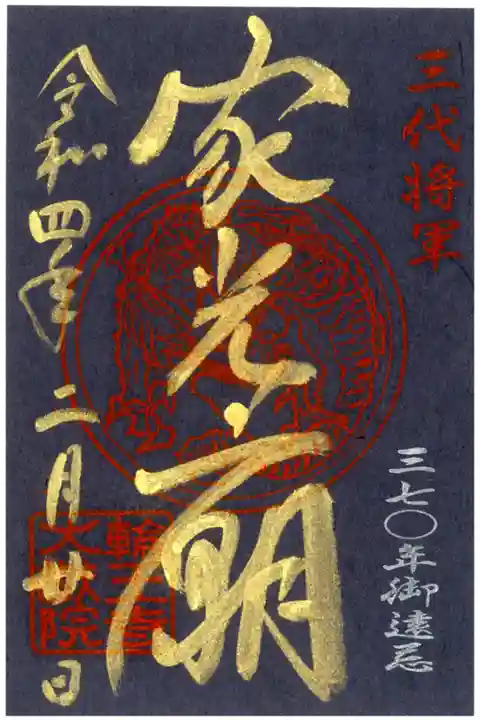 三代将軍
三七〇年御遠忌
家光廟
輪王寺
大猷院
令和四年二月廿日